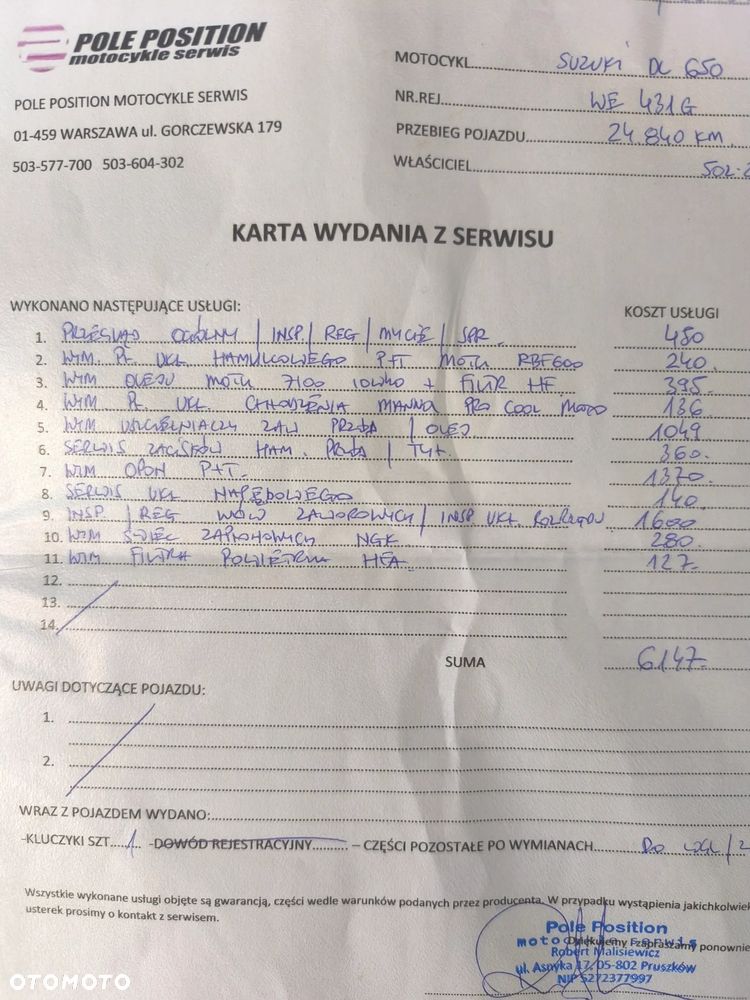 POLE POSITION
motocykle serwis
POLE POSITION MOTOCYKLE SERWIS
01-459 WARSZAWA ul. GORCZEWSKA 179
503-577-700 503-604-302
MOTOCYKL SUZUKI DL 650
NR.REJ WE 431G
PRZEBIEG POJAZDU 24.840 KM.
WŁAŚCICIEL 502-
KARTA WYDANIA Z SERWISU
WYKONANO NASTĘPUJĄCE USŁUGI: KOSZT USŁUGI
1. PRZEGLĄD OGÓLNY / INSP / REG / MYCIE / SPR. 450
2. WYM. PŁ. UKŁ. HAMULCOWEGO P+T MOTUL RBF600 240.
3. WYM OLEJU MOTUL 7100 10W40 + FILTR HF 395.
4. WYM PŁ. UKŁ. CHŁODZENIA MANNOL PRO COOL MOTO 136
5. WYM USZCZELNIACZY ZAW PRZÓD / OLEJ 1049
6. SERWIS ZACISKÓW HAM. PRZÓD / TYŁ 360.
7. WYM OPON P+T. 1370.
8. SERWIS UKŁ NAPĘDOWEGO 140.
9. INSP / REG LUZÓW ZAWOROWYCH / INSP. UKŁ. ROZRZĄDU 1600
10. WYM ŚWIEC ZAPŁONOWYCH NGK 280.
11. WYM FILTRA POWIETRZA HFA 127
12.
13.
14.
SUMA 6147.-
UWAGI DOTYCZĄCE POJAZDU:
1.
2.
WRAZ Z POJAZDEM WYDANO:
-KLUCZYKI SZT. 1 -DOWÓD REJESTRACYJNY – CZĘŚCI POZOSTAŁE PO WYMIANACH DO
Wszystkie wykonane usługi objęte są gwarancją, części wedle warunków podanych przez producenta. W przypadku wystąpienia jakichkolwiek
usterek prosimy o kontakt z serwisem.
Dziękujemy i zapraszamy ponownie
Pole Position
motocykle serwis
Robert Malisiewicz
ul. Asnyka 17, 05-802 Pruszków
NIP 5272377997
OTOMOTO